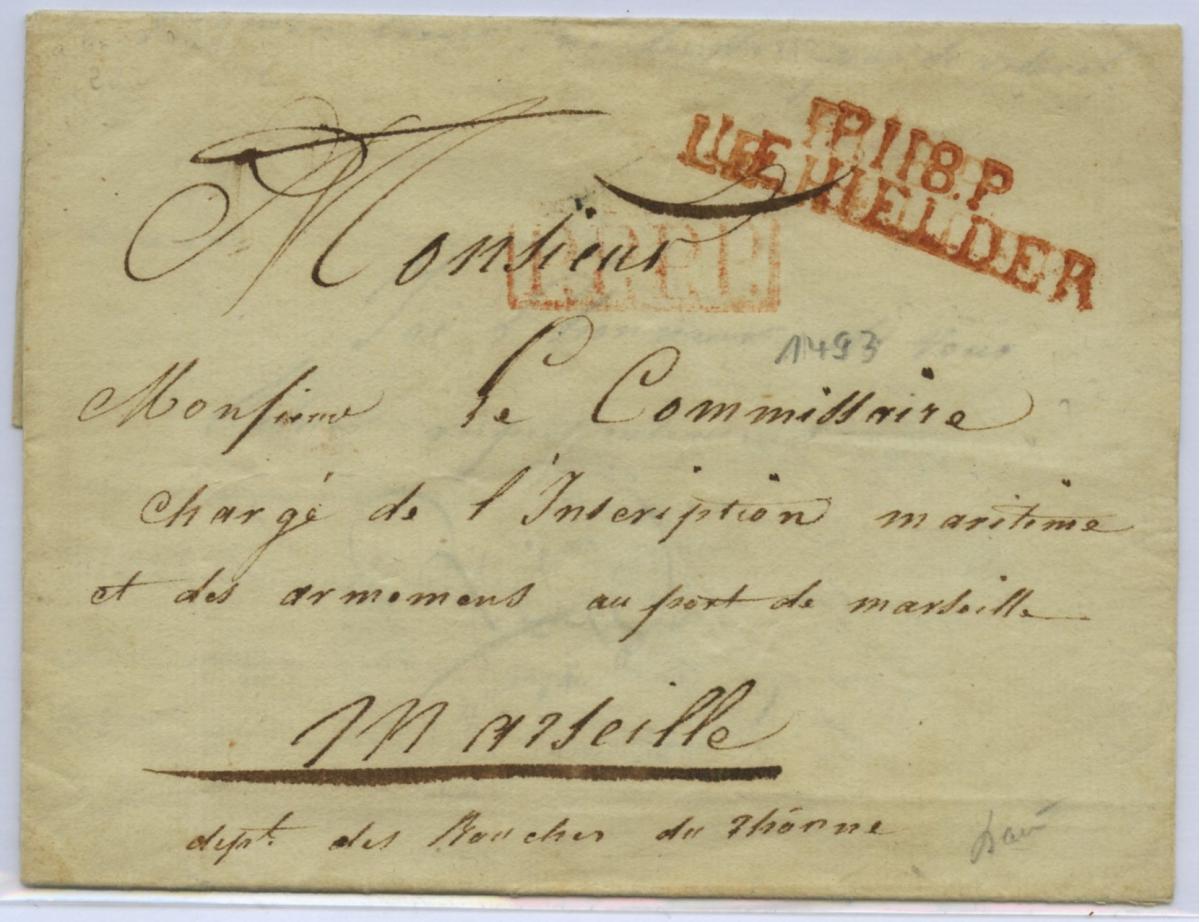 P.118.P
LE HELDER
Monsieur
P.P.P.P.
1493
Monsieur le Commissaire
chargé de l'Inscription maritime
et des armemens au port de marseille
Marseille
dept. des Bouches du Rhônne